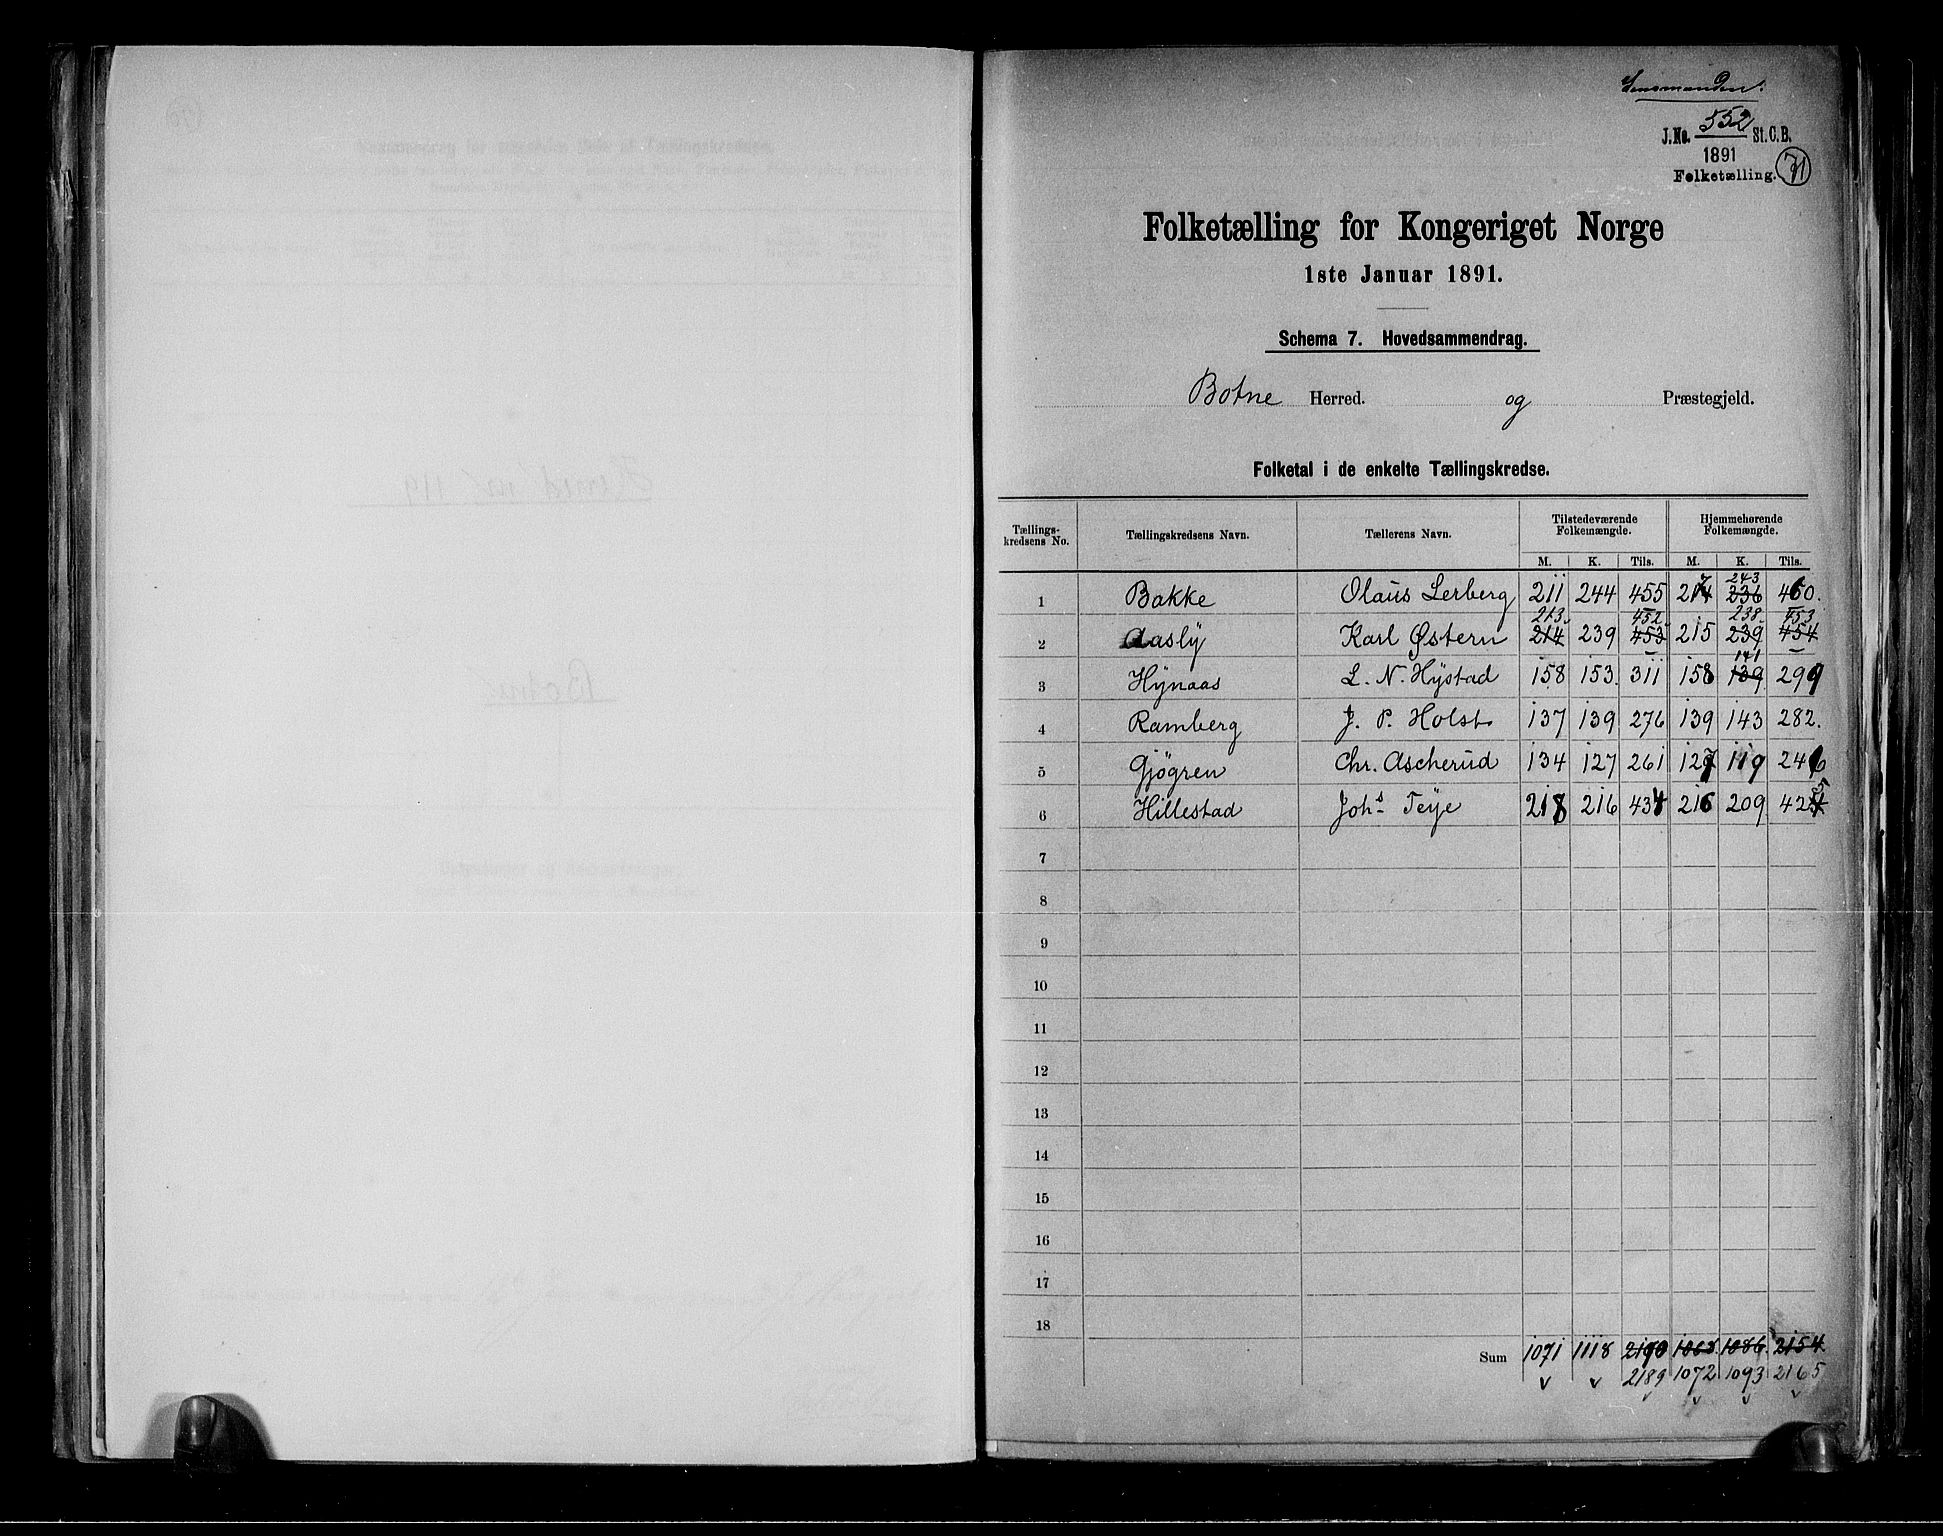 Lensmanden.
J.No. 552 St.C.B.
1891
Folketælling. 71
Folketælling for Kongeriget Norge
1ste Januar 1891.
Schema 7. Hovedsammendrag.
Botne Herred. og Præstegjeld.
Folketal i de enkelte Tællingskredse.
Tællings-kredsens No. Tællingskredsens Navn. Tællerens Navn. Tilstedeværende Folkemængde. Hjemmehørende Folkemængde.
M. K. Tils. M. K. Tils.
243
1 Bakke Olaus Lerberg 211 244 455 217 236 460.
213. 452. 238. 453
2 Aasly Karl Østern 214 239 453 215 239 454
141
3 Hynaas L. N. Hystad 158 153 311 158 139 299
4 Ramberg J. P. Holst 137 139 276 139 143 282.
5 Gjøgren Chr. Ascherud 134 127 261 127 119 246
6 Hillestad Johs Teije 218 216 434 216 209 425
7
8
9
10
11
12
13
14
15
16
17
18
Sum 1071 1118 2190 1068. 1086. 2154.
2189 1072 1093 2165